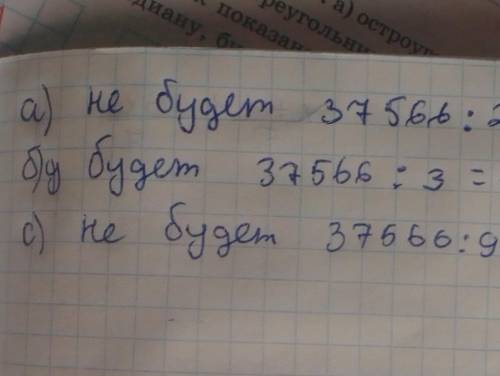 а) остроуг
реугольни
показан
диану, бу
а) не будет 37566 : 2
б) будет 37566 : 3 =
с) не будет 37566 : 9